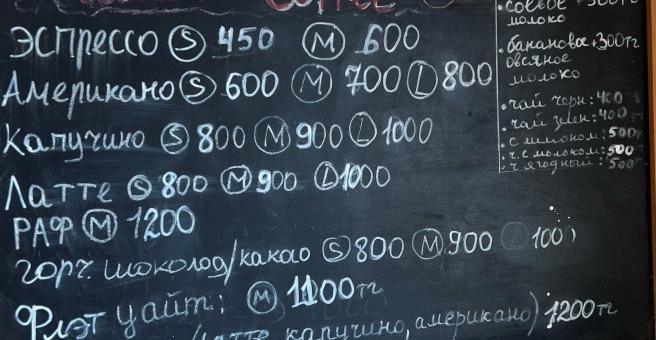 COFFEE
ЭСПРЕССО S 450 M 600
Американо S 600 M 700 L 800
Капучино S 800 M 900 L 1000
Латте S 800 M 900 L 1000
РАФ M 1200
горч. шоколад/какао S 800 M 900 L 1000
Флэт уайт: M 1100тг
(латте, капучино, американо) 1200тг
• соевое +300тг
молоко
• банановое +300тг
овсяное
молоко
• чай черн: 400
• чай зелен: 400
• с молоком: 500
• ч. с молоком: 500
• ч ягодный: 500